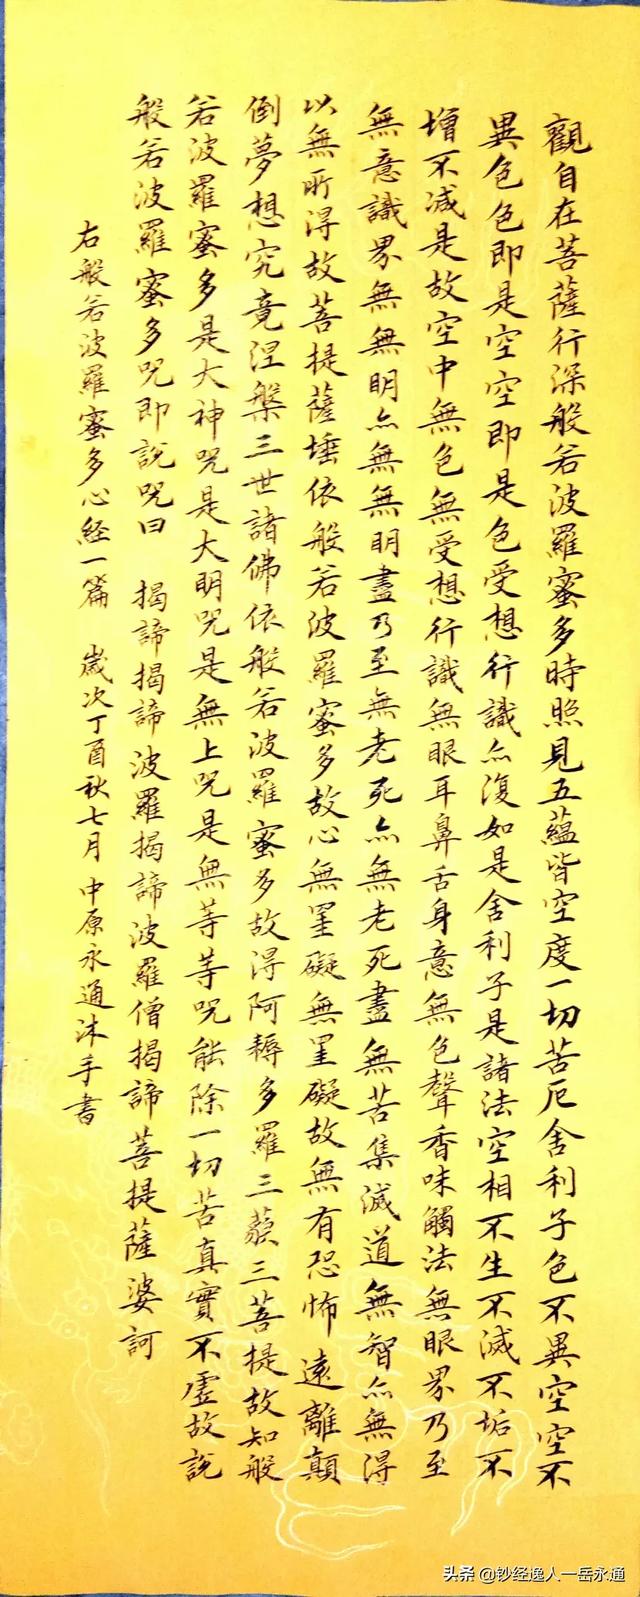 觀自在菩薩行深般若波羅蜜多時照見五蘊皆空度一切苦厄舍利子色不異空空不
異色色即是空空即是色受想行識亦復如是舍利子是諸法空相不生不滅不垢不
增不减是故空中無色無受想行識無眼耳鼻舌身意無色聲香味觸法無眼界乃至
無意識界無無明亦無無明盡乃至無老死亦無老死盡無苦集滅道無智亦無得
以無所得故菩提薩埵依般若波羅蜜多故心無罣礙無罣礙故無有恐怖遠離顛
倒夢想究竟涅槃三世諸佛依般若波羅蜜多故得阿耨多羅三藐三菩提故知般
若波羅蜜多是大神咒是大明咒是無上咒是無等等咒能除一切苦真實不虛故說
般若波羅蜜多咒即說咒曰 揭諦揭諦波羅揭諦波羅僧揭諦菩提薩婆訶
右般若波羅蜜多心経一篇 歲次丁酉秋七月 中原永通沐手書
头条 @钞经逸人一岳永通